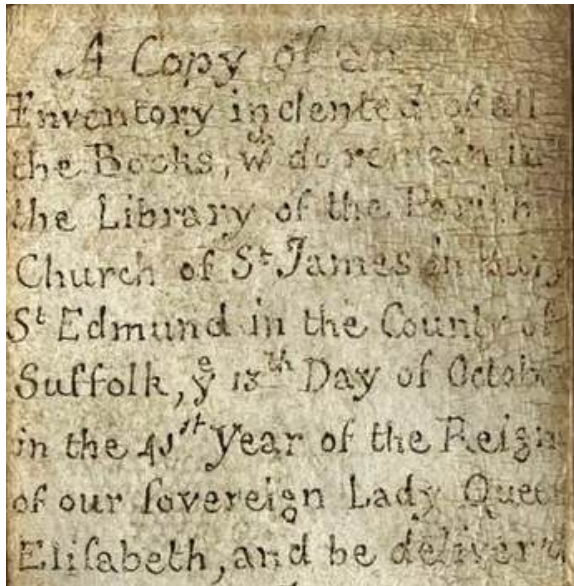 A Copy of an
Inventory indented of all
the Books, wᶜʰ do remain in
the Library of the Parish
Church of Sᵗ James in Bury
Sᵗ Edmund in the County of
Suffolk, yᵉ 13ᵗʰ Day of October
in the 41ˢᵗ Year of the Reign
of our ſovereign Lady Queen
Eliſabeth, and be deliver'd